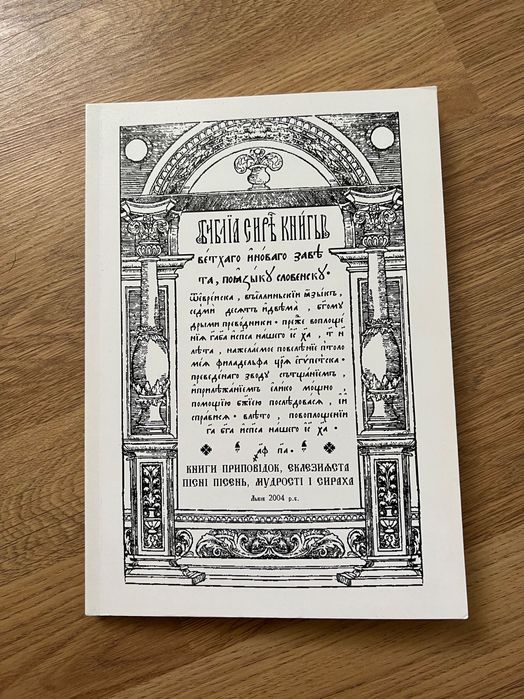 БИБЛЇА СИРѢ КНИГЫ
ве́тхаго и҆но́ваго завѣ
та, поꙗ҆зы́ку словенску·
ѿевре́йска, въеллиньскїи ꙗ҆зы́къ,
седми десѧть идвѣма̀, бг҃ому
дрыми преводники· прѐже воплоще
нїѧ габа испса нашего іс ха, т҃ и
лѣта, нажелаемое повелѣнїе птоло
меѧ филаделфа црѧ єгупетска·
преведенаго зводу сътщанїемъ,
иприлѣжанїемъ елико мощно,
помощїю бж҃їею послѣдовасѧ, и
справисѧ· влѣто, повоплощенїи
га бга испса нашего іс ха·
҂аф па·
КНИГИ ПРИПОВІДОК, ЕКЛЕЗИЯСТА
ПІСНІ ПІСЕНЬ, МУДРОСТІ І СИРАХА
Львів 2004 р.є.